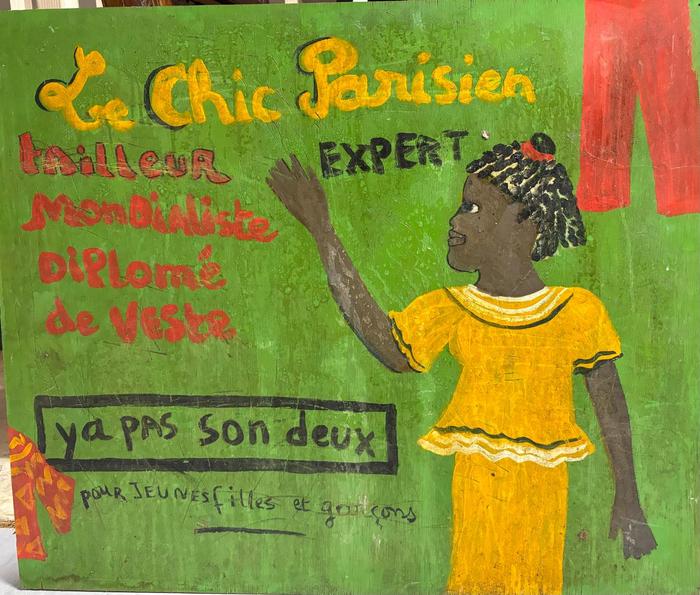 Le Chic Parisien
tailleur EXPERT
MonDialiste
Diplomé
de VESte
ya PAS son deux
POUR JEUNES filles et garçons